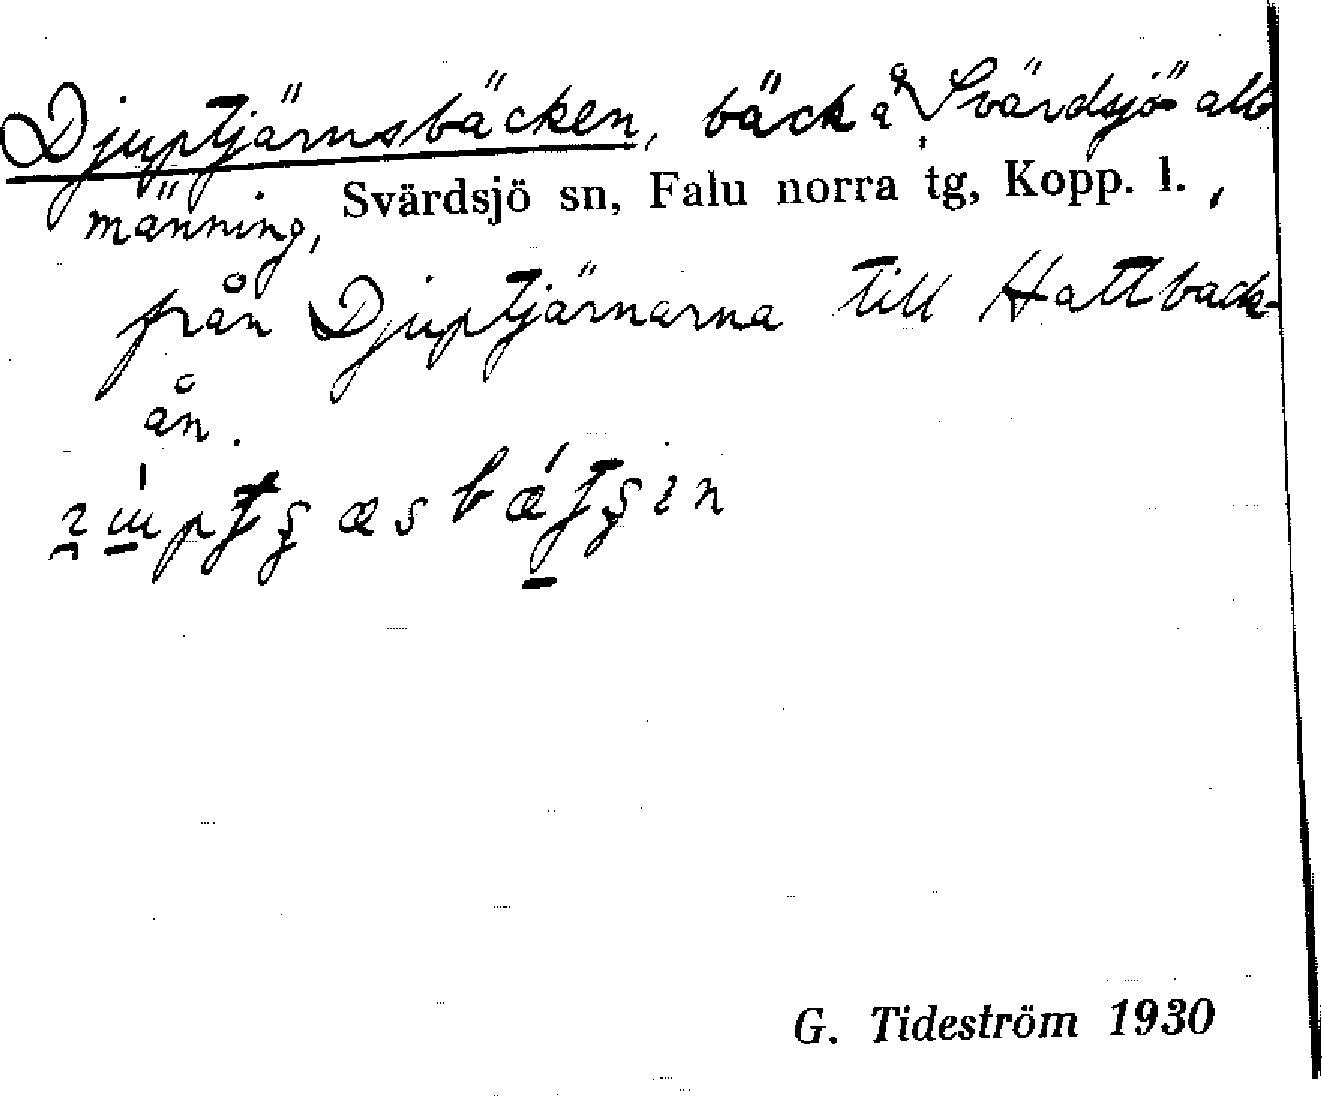 Djuptjärnsbäcken, bäck å Svärdsjö all
männing, Svärdsjö sn, Falu norra tg, Kopp. l.,
från Djuptjärnarna till Hattback-
ån.
G. Tideström 1930